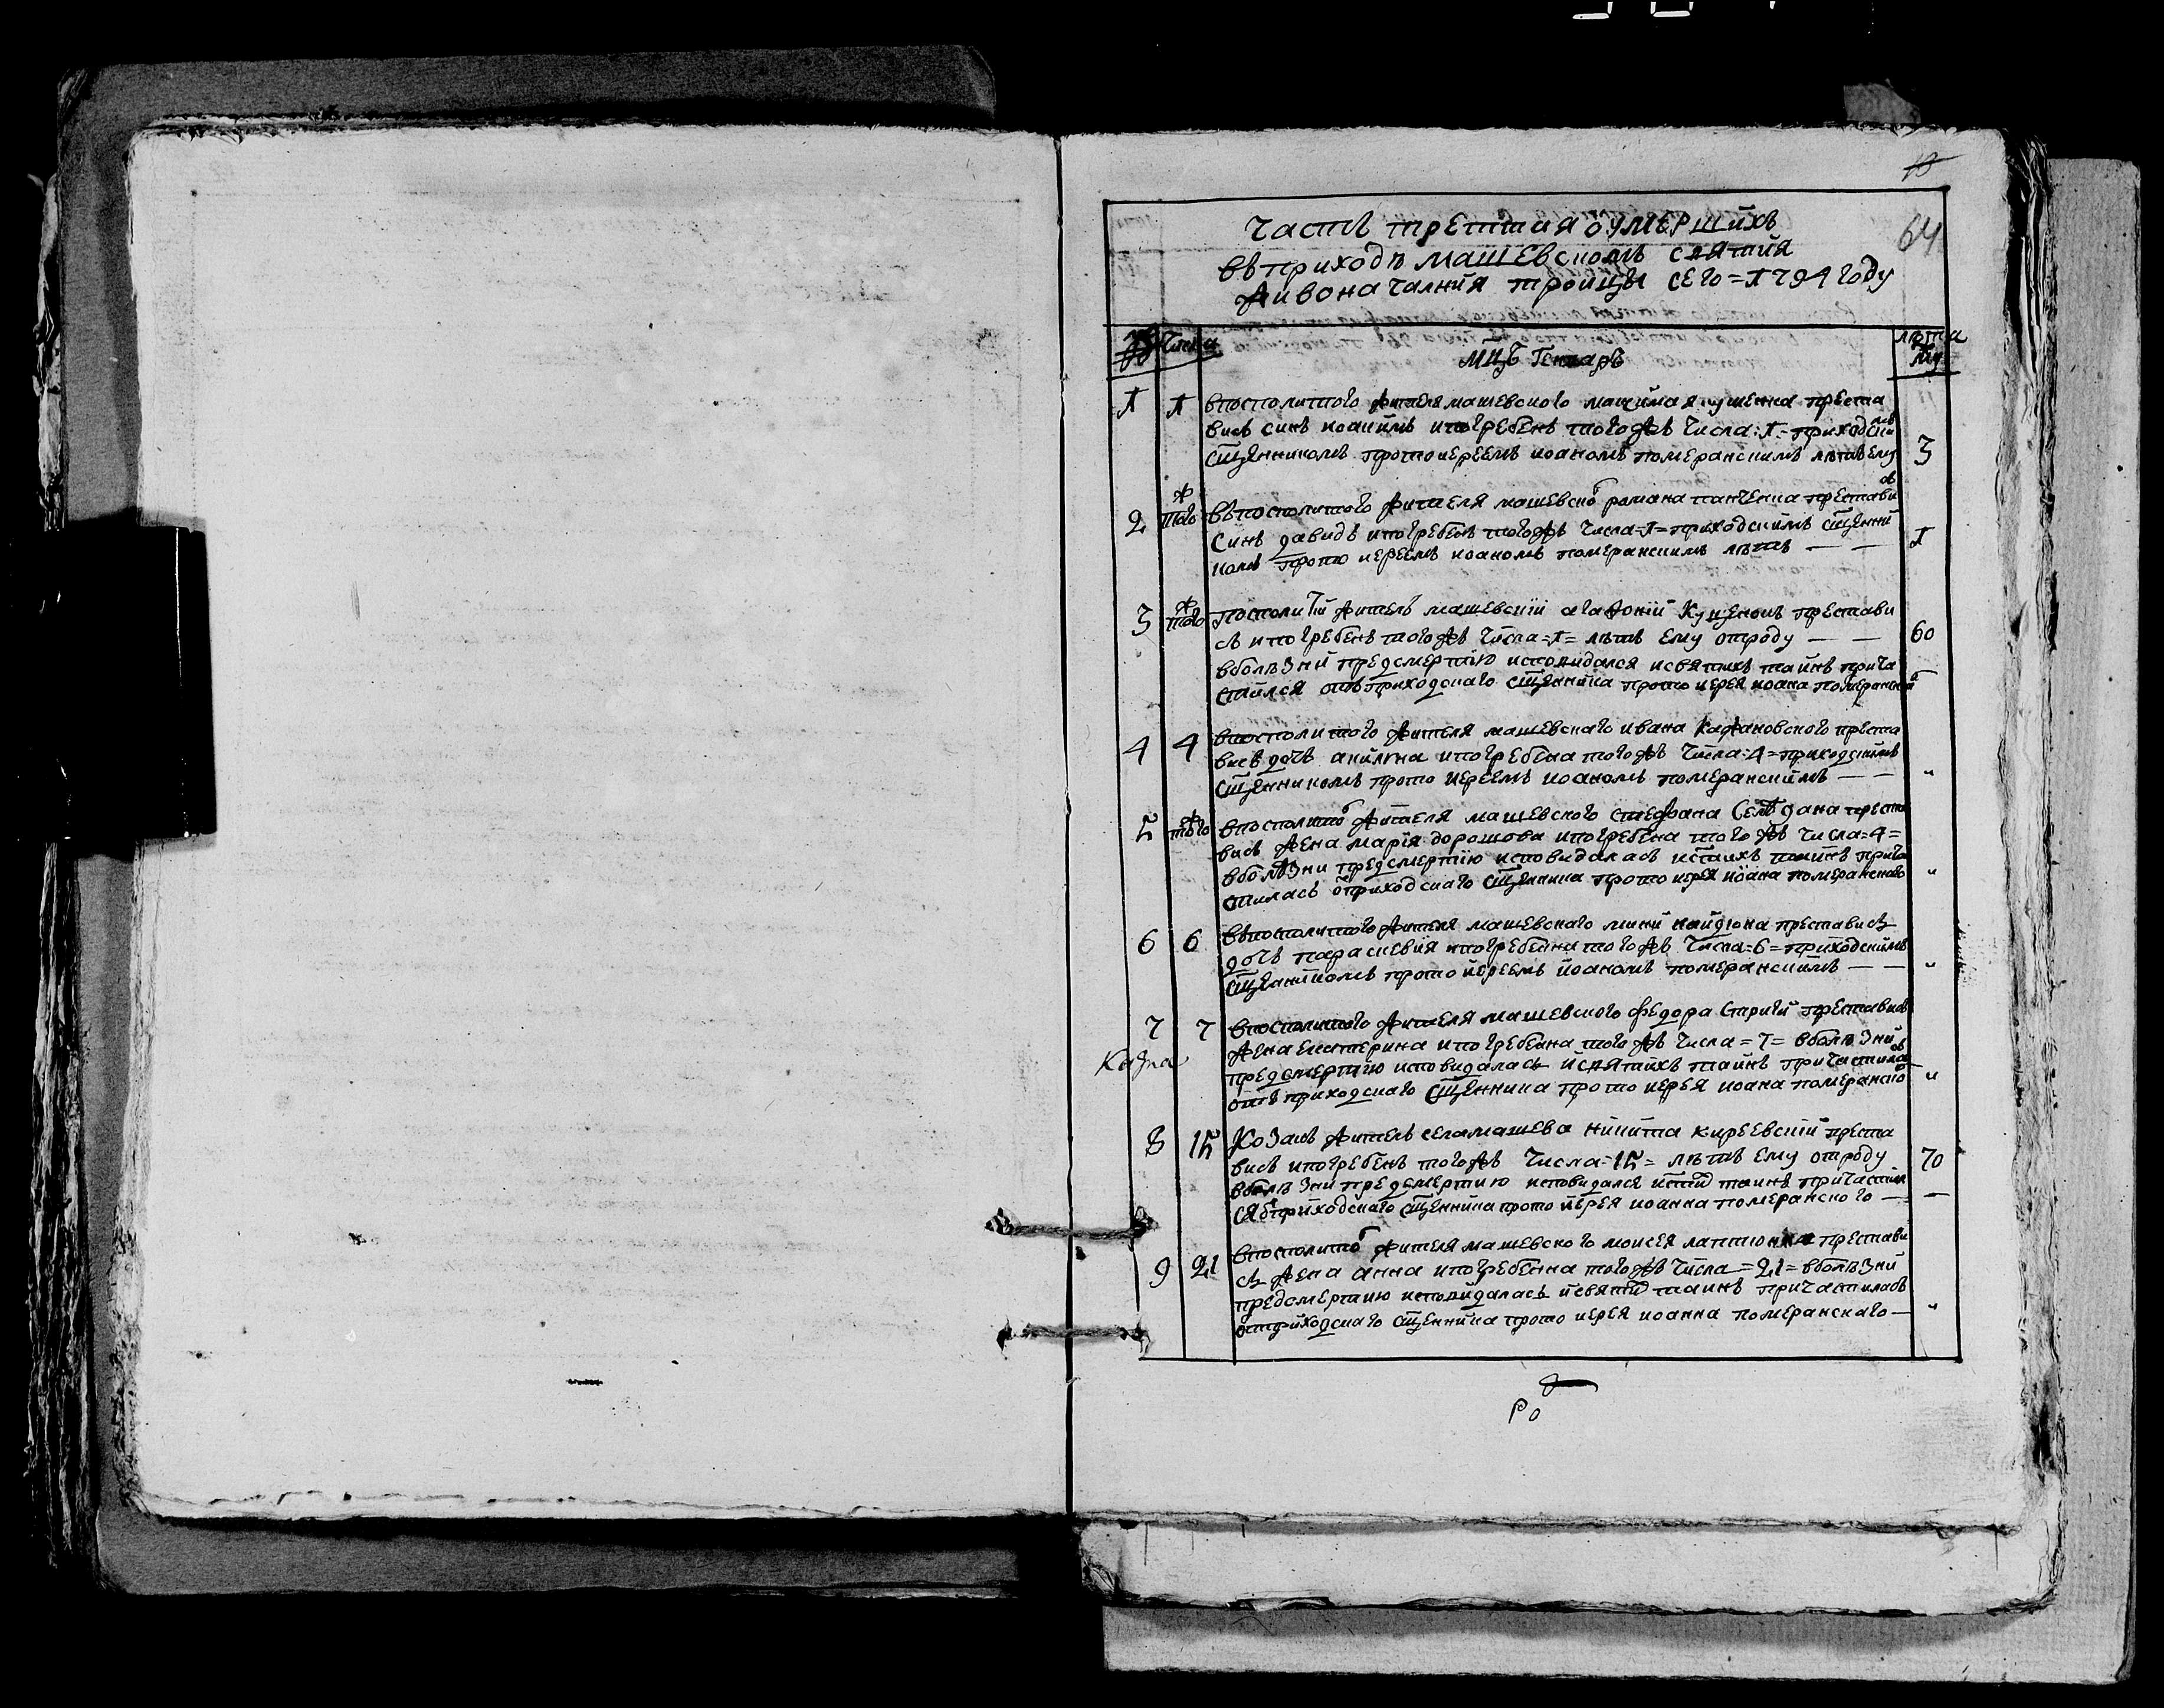 64
Часть треттия оумершихъ
въ приходѣ машевскомъ святия
живоначалния тройцы сего=1794 году
числа
мцъ Генъаръ
лѣта
1 1 впосполитого жителя машевского престависъ синъ иоакимъ ипогребенъ того жъ числа:1=приходскимъ
сщенникомъ протоиереемъ иоаномъ померанскимъ лѣтъ ему 3
2 того ж въпосполитого жителя машевско романа панченка преставис
синъ давидъ ипогребенъ тогожъ числа=1=приходскимъ сщенни
комъ прото иереемъ иоаномъ померанскимъ лѣтъ — — 1
3 того ж посполитій житель машевскій агафоній Куценокъ престави
съ ипогребенъ тогожъ числа=1= лѣтъ ему отроду — — 60
вболѣзни предсмертію исповидался исвятихъ таинъ прича
стился отъ приходскаго сщенника прото иерея иоана померанско
4 4 впосполитого жителя машевскаго ивана Кажановского преста
висъ дочъ акилина ипогребена тогожъ числа:4=приходскимъ
сщенникомъ прото иереемъ иоаномъ померанскимъ — — "
5 того ж впосполито жителя машевского стефана преста
висъ жена марія дорошова ипогребена того жъ числа=4=
вболѣзни предсмертію исповидаласъ истихъ таинъ прича
стиласъ о приходскаго сщенника прото иерея иоана померанского "
6 6 въпосполитого жителя машевскаго найдюна преставись
дочъ параскевия ипогребенна того жъ числа=6=приходскимъ
сщенникомъ прото иереемъ иоаномъ померанскимъ — — "
7 7 впосполитого жителя машевского федора Стригй преставись
жена екатерина ипогребенна того жъ числа=7= вболѣзни
предсмертию исповидаласъ исвятихъ таинъ причастилась
отъ приходскаго сщенника прото иерея иоана померанско "
8 15 Козакъ житель села машева никита киреевскій преста
висъ ипогребенъ тогожъ числа=15= лѣтъ ему отроду 70
вболѣзни предсмертию исповидался истих таинъ причастил
ся о приходскаго сщенника прото иерея иоанна померанского —
9 21 впосполито жителя машевского моисея лаптионка престави
съ жена анна ипогребенна тогожъ числа=21=вболѣзни
предсмертию исповидаласъ исвятих таинъ причастиласъ
отприходскаго сщенника прото иерея иоанна померанскаго — "